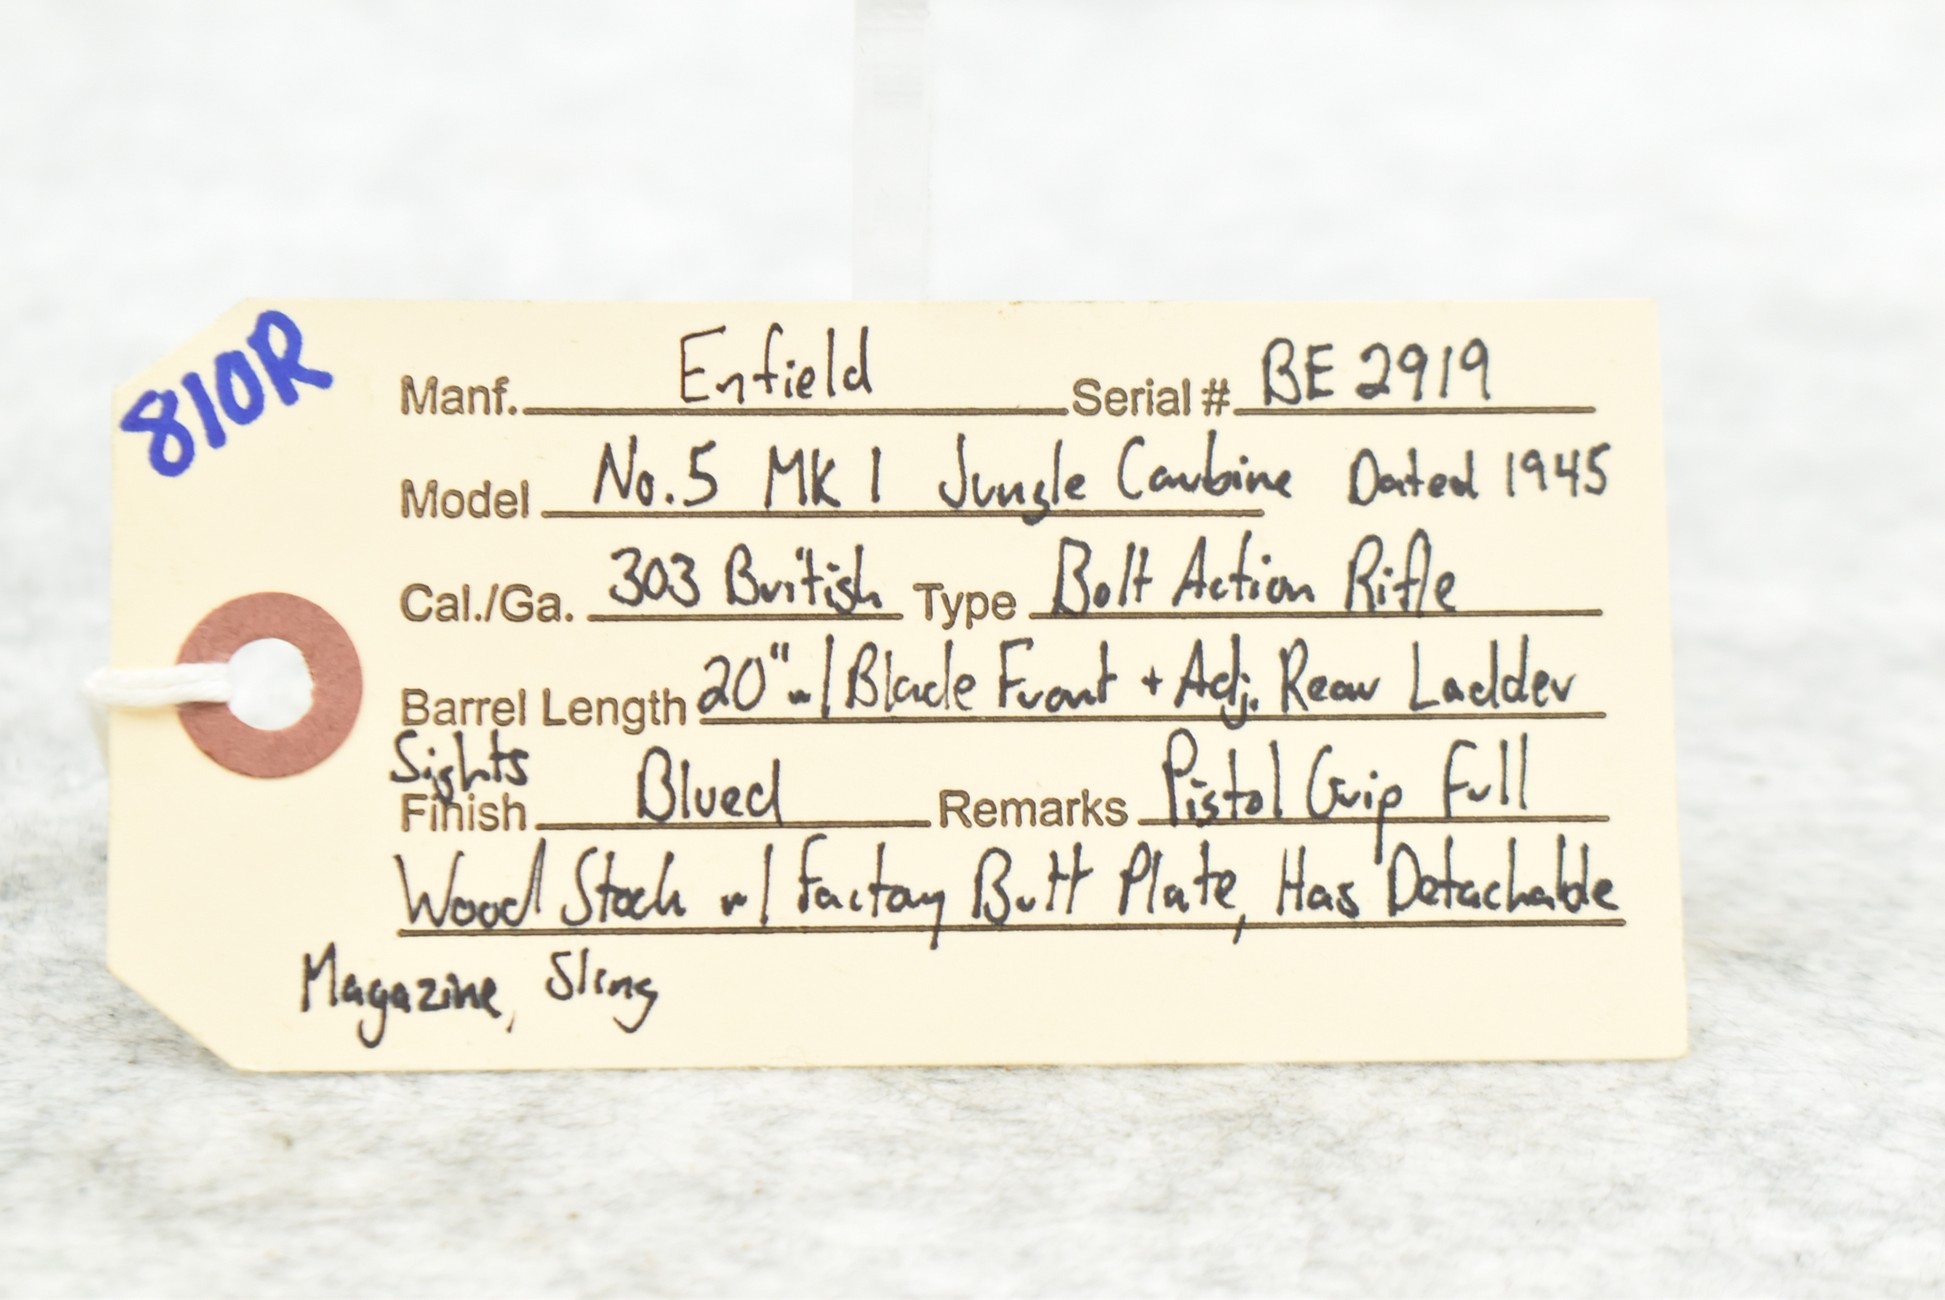 810R
Manf. Enfield Serial # BE 2919
Model No.5 MK 1 Jungle Carbine Dated 1945
Cal./Ga. 303 British Type Bolt Action Rifle
Barrel Length 20" w/ Blade Front + Adj. Rear Ladder
Sights
Finish Blued Remarks Pistol Grip Full
Wood Stock w/ Factory Butt Plate, Has Detachable
Magazine, Sling